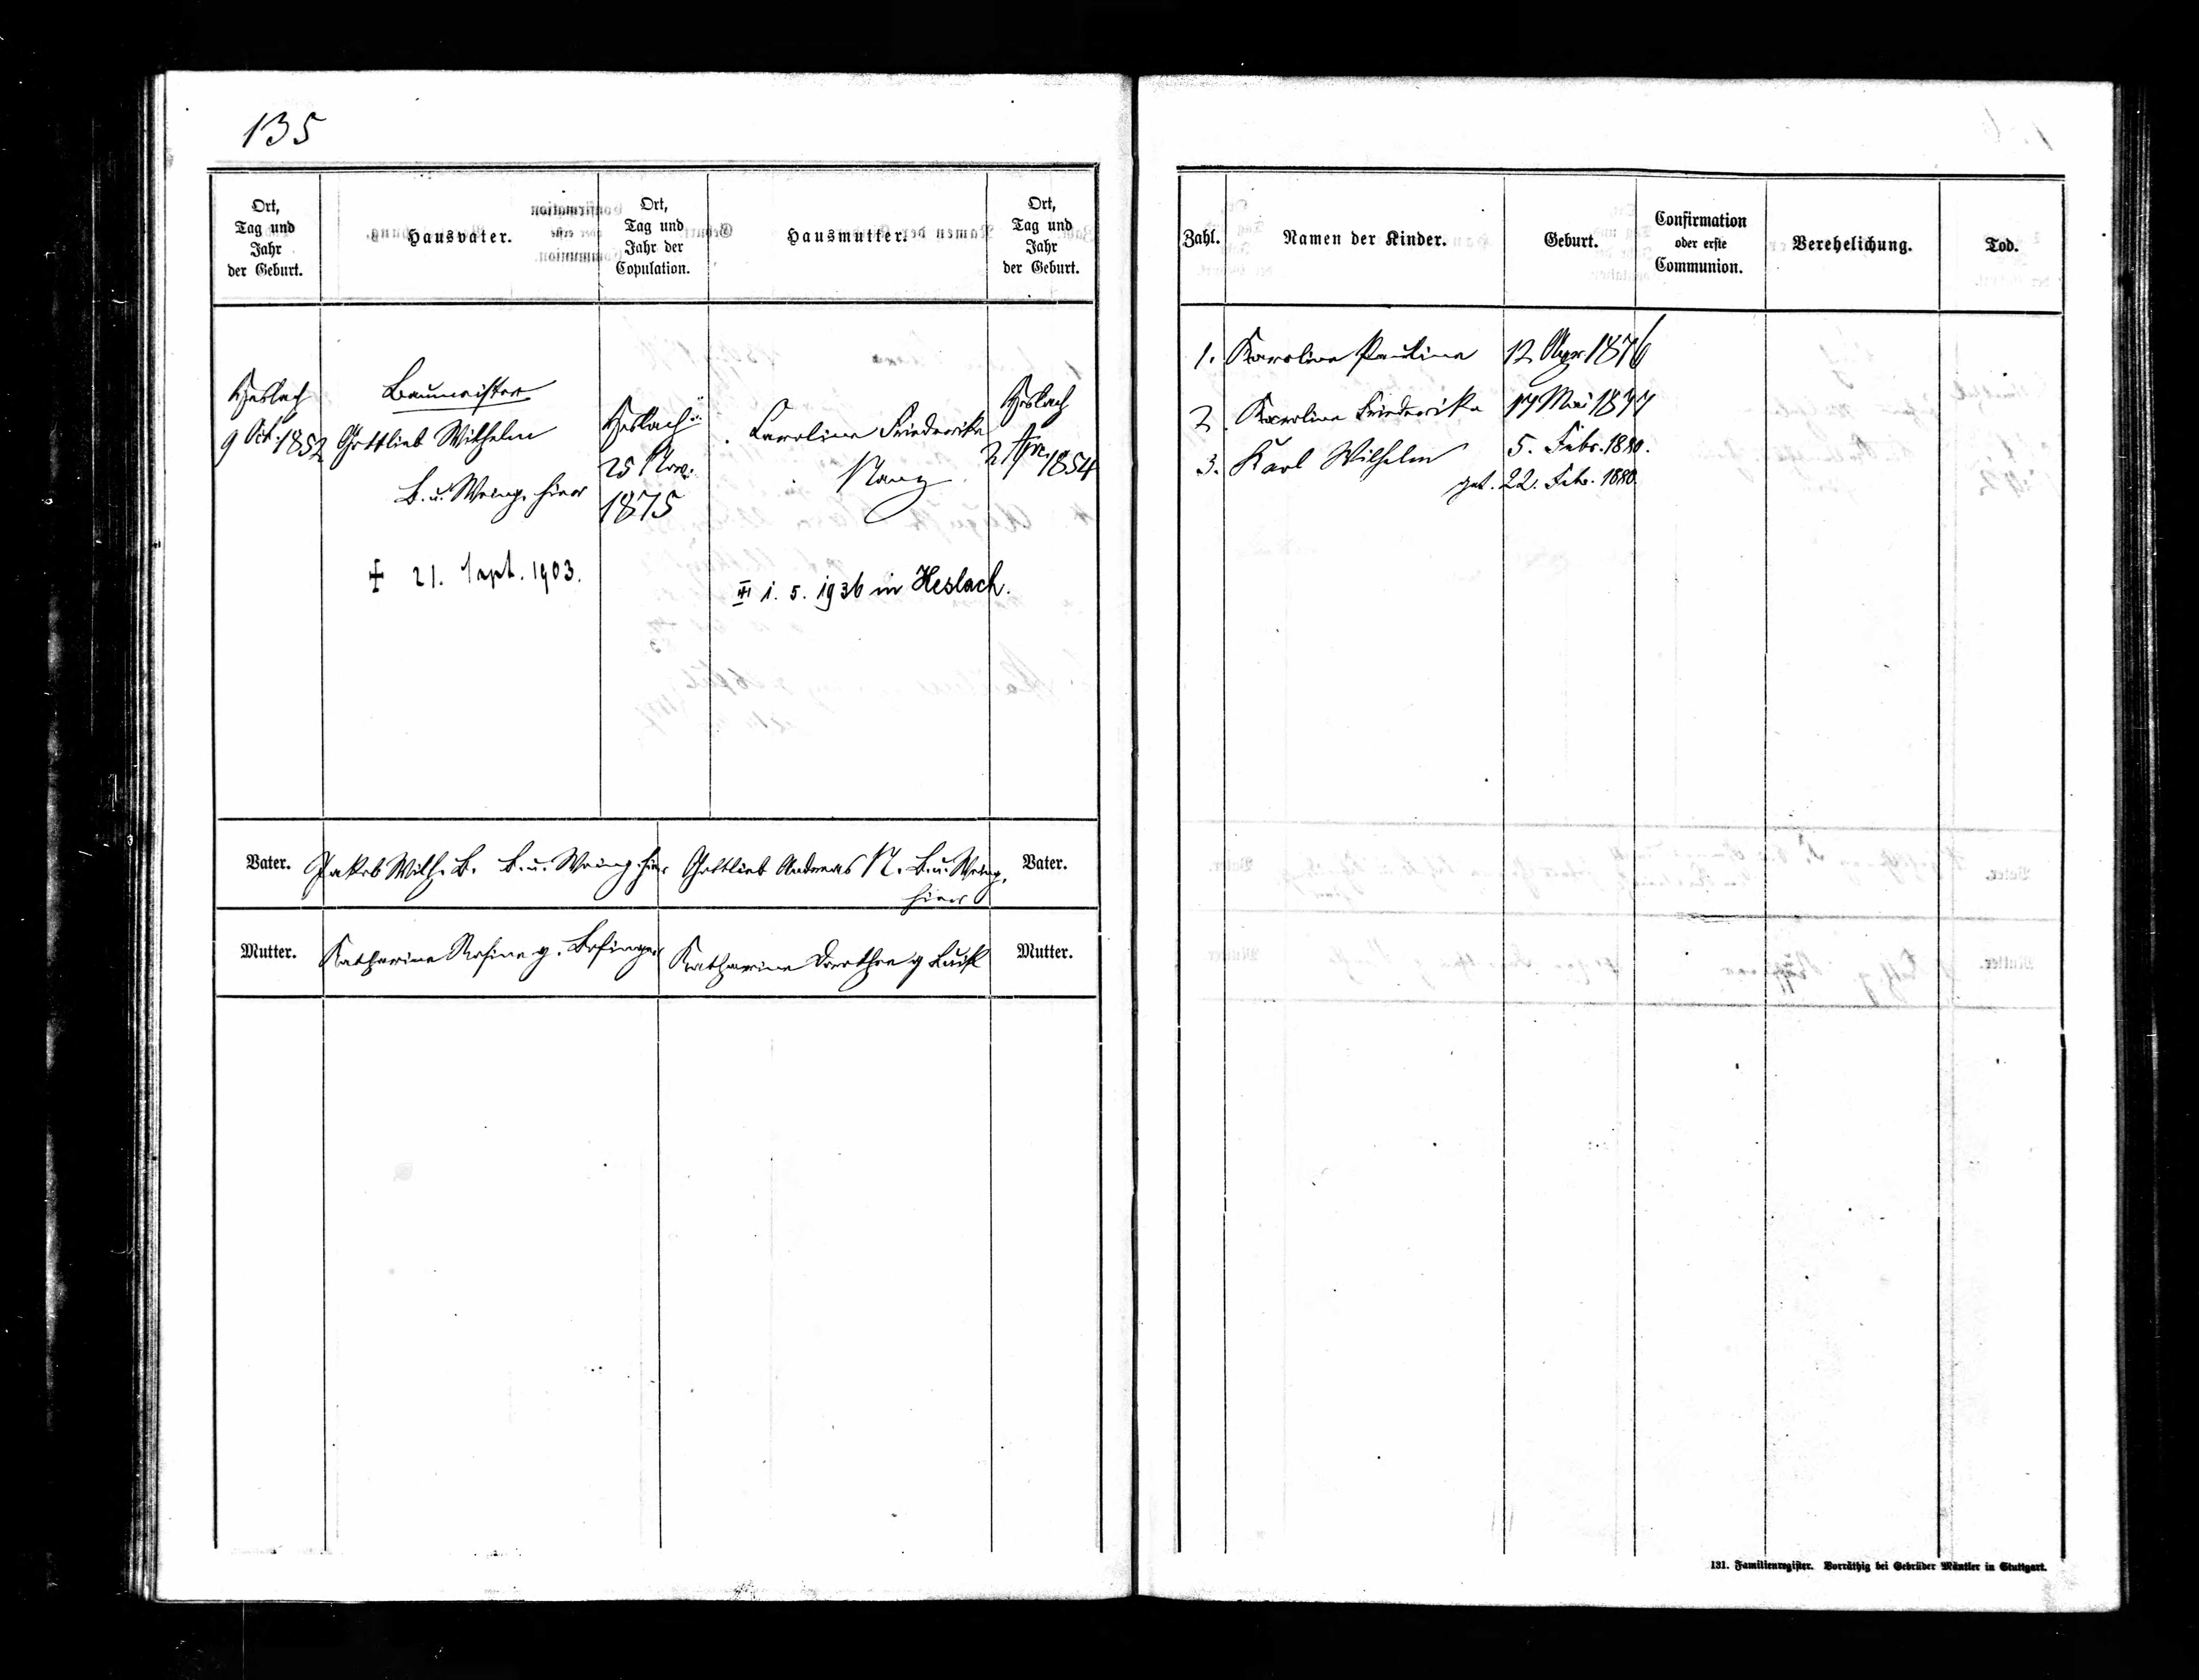 135
Ort,
Tag und
Jahr
der Geburt.
Hausvater.
Ort,
Tag und
Jahr der
Copulation.
Hausmutter.
Ort,
Tag und
Jahr
der Geburt.
Heslach
9 Oct. 1852
Baumeister
Gottlieb Wilhelm
B. u. Weing. hier
Heslach
25 Nov.
1875
Caroline Friederike
Nanz
Heslach
2 1854
† 21. Sept. 1903.
1. 5. 1936 in Heslach.
Vater.
Jakob Wilh. B. B. u. Weing. hier
Gottlieb Andreas N. B. u. Weing.
hier
Vater.
Mutter.
Katharine Rosine g.
Katharine Dorothea g
Mutter.
Zahl.
Namen der Kinder.
Geburt.
Confirmation
oder erste
Communion.
Verehelichung.
Tod.
1. Karoline Pauline 12 Apr 1876
2. Karoline Friederike 17 Mai 1877
3. Karl Wilhelm 5. Febr. 1880.
get. 22. Feb. 1880.
131. Familienregister. Vorräthig bei Gebrüder Mäntler in Stuttgart.